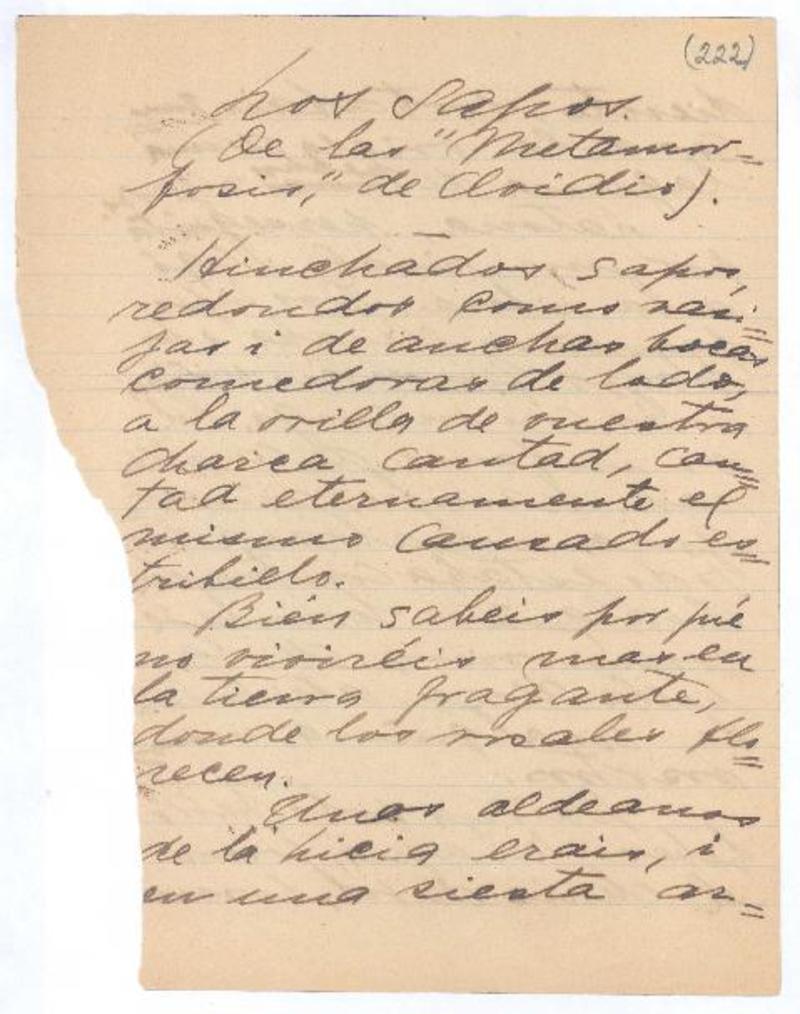 (222)
Los Sapos.
(De las "Metamor=
fosis", de Ovidio).
Hinchados sapos,
redondos como van=
jas i de anchas bocas
comedoras de lodo,
a la orilla de vuestra
charca cantad, can=
tad eternamente el
mismo cansado es=
tribillo.
Bien sabéis por qué
no viviréis mas en
la tierra fragante,
donde los rosales flo=
recen.
Unos aldeanos
de la Licia erais, i
en una siesta ar=